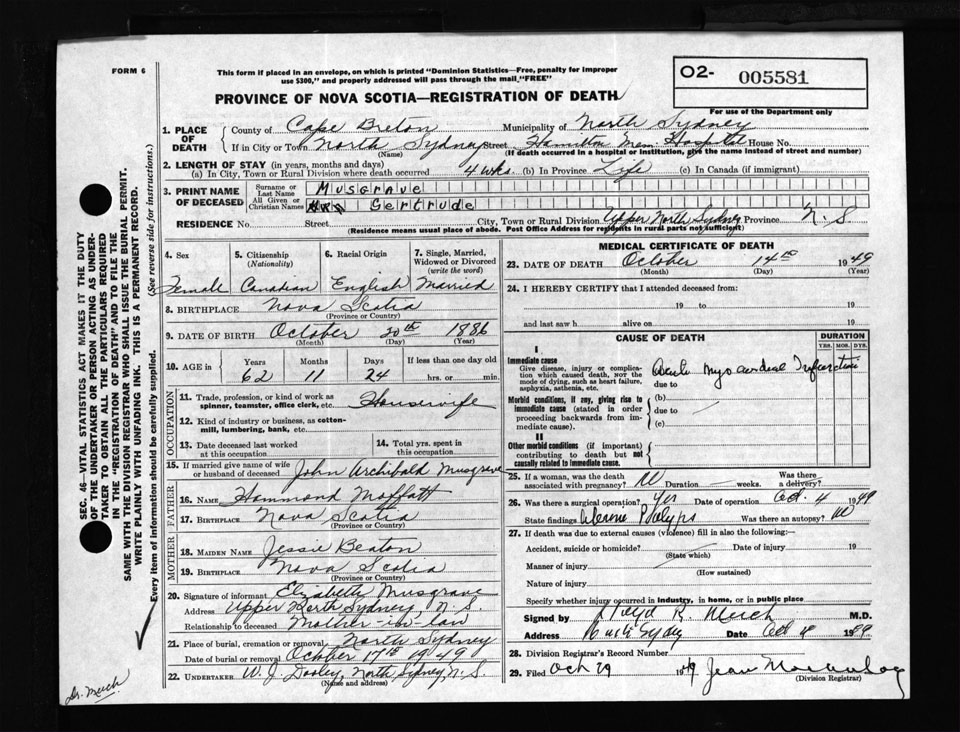 FORM 6
This form if placed in an envelope, on which is printed "Dominion Statistics—Free, penalty for improper
use $300," and properly addressed will pass through the mail, "FREE"
O2- 005581
For use of the Department only
PROVINCE OF NOVA SCOTIA—REGISTRATION OF DEATH
1. PLACE OF DEATH County of Cape Breton Municipality of North Sydney
If in City or Town North Sydney Street Hamilton Mem. Hospital House No.
(Name) (If death occurred in a hospital or institution, give the name instead of street and number)
2. LENGTH OF STAY (in years, months and days)
(a) In City, Town or Rural Division where death occurred 4 wks. (b) In Province Life (c) In Canada (if immigrant)
3. PRINT NAME OF DECEASED Surname or Last Name Musgrave
All Given or Christian Names Gertrude
RESIDENCE No. Street City, Town or Rural Division Upper North Sydney Province N. S
(Residence means usual place of abode. Post Office Address for residents in rural parts not sufficient)
4. Sex Female
5. Citizenship (Nationality) Canadian
6. Racial Origin English
7. Single, Married, Widowed or Divorced (write the word) Married
8. BIRTHPLACE Nova Scotia
(Province or Country)
9. DATE OF BIRTH October 20th 1886
(Month) (Day) (Year)
10. AGE in Years 62 Months 11 Days 24 If less than one day old hrs. or min.
OCCUPATION
11. Trade, profession, or kind of work as spinner, teamster, office clerk, etc. Housewife
12. Kind of industry or business, as cotton-mill, lumbering, bank, etc.
13. Date deceased last worked at this occupation
14. Total yrs. spent in this occupation
15. If married give name of wife or husband of deceased John Archibald Musgrave
FATHER
16. NAME Hammond Moffatt
17. BIRTHPLACE Nova Scotia
(Province or Country)
MOTHER
18. MAIDEN NAME Jessie Beaton
19. BIRTHPLACE Nova Scotia
(Province or Country)
20. Signature of informant Elizabeth Musgrave
Address Upper North Sydney, N. S.
Relationship to deceased Mother-in-law
21. Place of burial, cremation or removal North Sydney
Date of burial or removal October 17th 1949
22. UNDERTAKER W. J. Dooley, North Sydney, N. S.
(Name and address)
MEDICAL CERTIFICATE OF DEATH
23. DATE OF DEATH October 14th 1949
(Month) (Day) (Year)
24. I HEREBY CERTIFY that I attended deceased from:
19 to 19
and last saw h alive on 19
CAUSE OF DEATH DURATION
YRS. MOS. DYS.
I
Immediate cause
Give disease, injury or complication which caused death, NOT the mode of dying, such as heart failure, asphyxia, asthenia, etc.
Acute Myocardial Infarction
due to
Morbid conditions, if any, giving rise to immediate cause (stated in order proceeding backwards from immediate cause).
(b)
due to
(c)
II
Other morbid conditions (if important) contributing to death but not causally related to immediate cause.
25. If a woman, was the death associated with pregnancy? Duration weeks. Was there a delivery?
26. Was there a surgical operation? Yes Date of operation Oct. 4 1949
State findings Was there an autopsy?
27. If death was due to external causes (violence) fill in also the following:—
Accident, suicide or homicide? Date of injury 19
(State which)
Manner of injury
(How sustained)
Nature of injury
Specify whether injury occurred in industry, in home, or in public place
Signed by M.D.
Address Date Oct 19
28. Division Registrar's Record Number
29. Filed Oct 29 1949 Jean
(Division Registrar)
SEC. 46—VITAL STATISTICS ACT MAKES IT THE DUTY
OF THE UNDERTAKER OR PERSON ACTING AS UNDER-
TAKER TO OBTAIN ALL THE PARTICULARS REQUIRED
IN THE "REGISTRATION OF DEATH" AND TO FILE THE
SAME WITH THE DIVISION REGISTRAR WHO SHALL ISSUE THE BURIAL PERMIT.
WRITE PLAINLY WITH UNFADING INK. THIS IS A PERMANENT RECORD.
Every item of information should be carefully supplied. (See reverse side for instructions.)
Dr. Meech